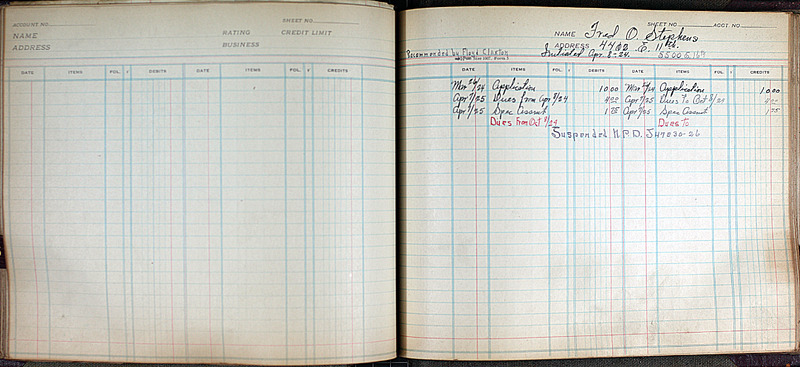 SHEET NO.
ACCOUNT NO.
NAME RATING CREDIT LIMIT
ADDRESS BUSINESS
DATE ITEMS FOL. √ DEBITS DATE ITEMS FOL. √ CREDITS
SHEET NO. ACCT. NO.
NAME Fred O. Stephens
ADDRESS 4402 E. 11th.
Recommended by Floyd Claxton Initiated Apr. 8-24.
DATE ITEMS FOL. √ DEBITS DATE ITEMS FOL. √ CREDITS
Mar /24 Application 10 00 Mar /24 Application 10 00
Apr 7/25 Dues from Apr 8/24 4 22 Apr 7/25 Dues To Oct 8/24 4 22
Apr 7/25 Spec Assmt 1 75 Apr 7/25 Spec Assmt 1 75
Dues from Oct 8/24 Dues To
Suspended N.P.D. 30-26